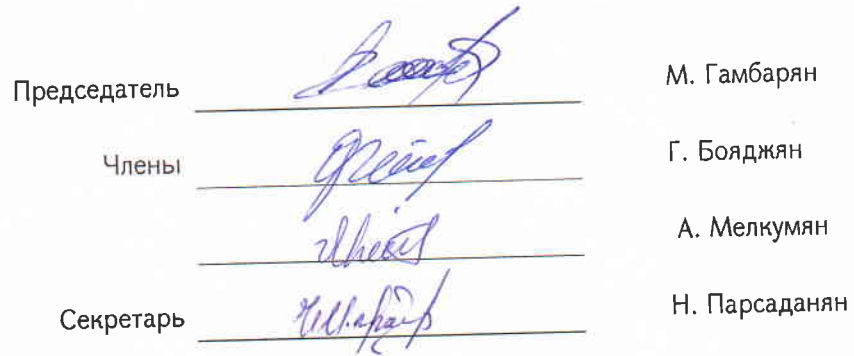 Председатель М. Гамбарян
Члены Г. Бояджян
А. Мелкумян
Секретарь Н. Парсаданян